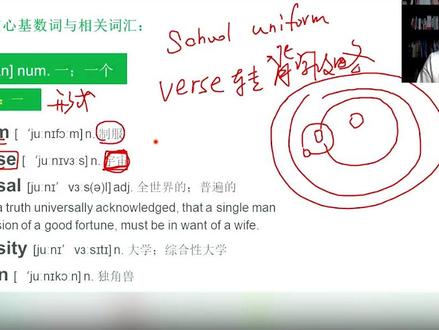 心基数词与相关词汇：
School uniform
n] num. 一；一个
verse 转
一
形式
m [ˈjuːnɪfɔːm] n. 制服
se [ˈjuːnɪvɜːs] n. 宇宙
sal [juːnɪˈvɜːs(ə)l] adj. 全世界的；普遍的
a truth universally acknowledged, that a single man
sion of a good fortune, must be in want of a wife.
sity [juːnɪˈvɜːsɪtɪ] n. 大学；综合性大学
n [ˈjuːnɪkɔːn] n. 独角兽